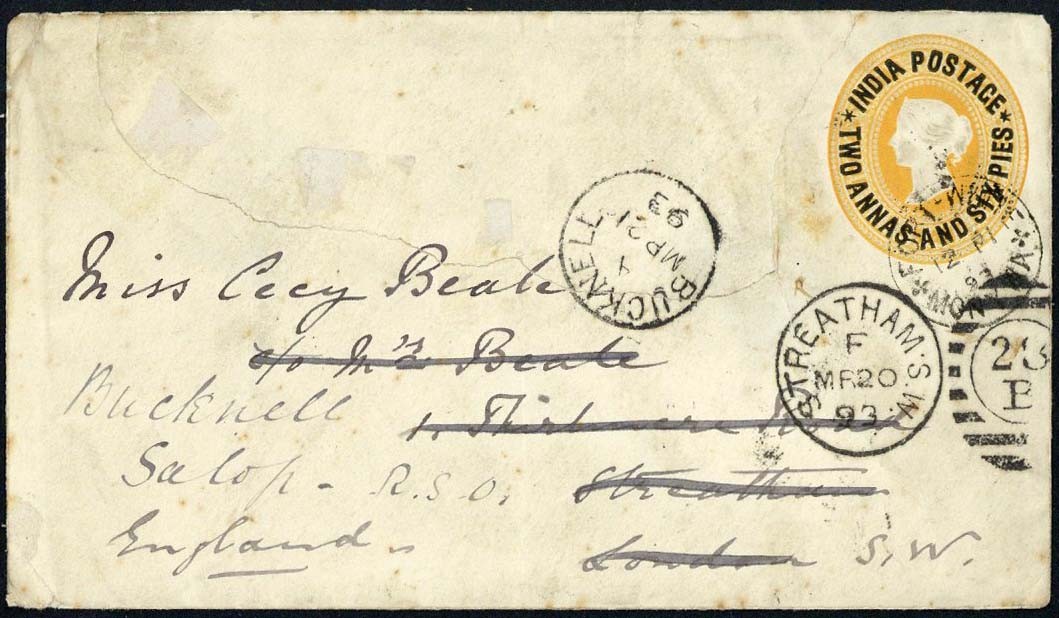 INDIA POSTAGE
TWO ANNAS AND SIX PIES
BUCKNELL
MR 21
93
STREATHAM. S.W.
F
MR 20
93
B
Miss Cecy Beale
c/o Mrs Beale
Bucknell
Salop - R.S.O.
Streatham
England
London S.W.